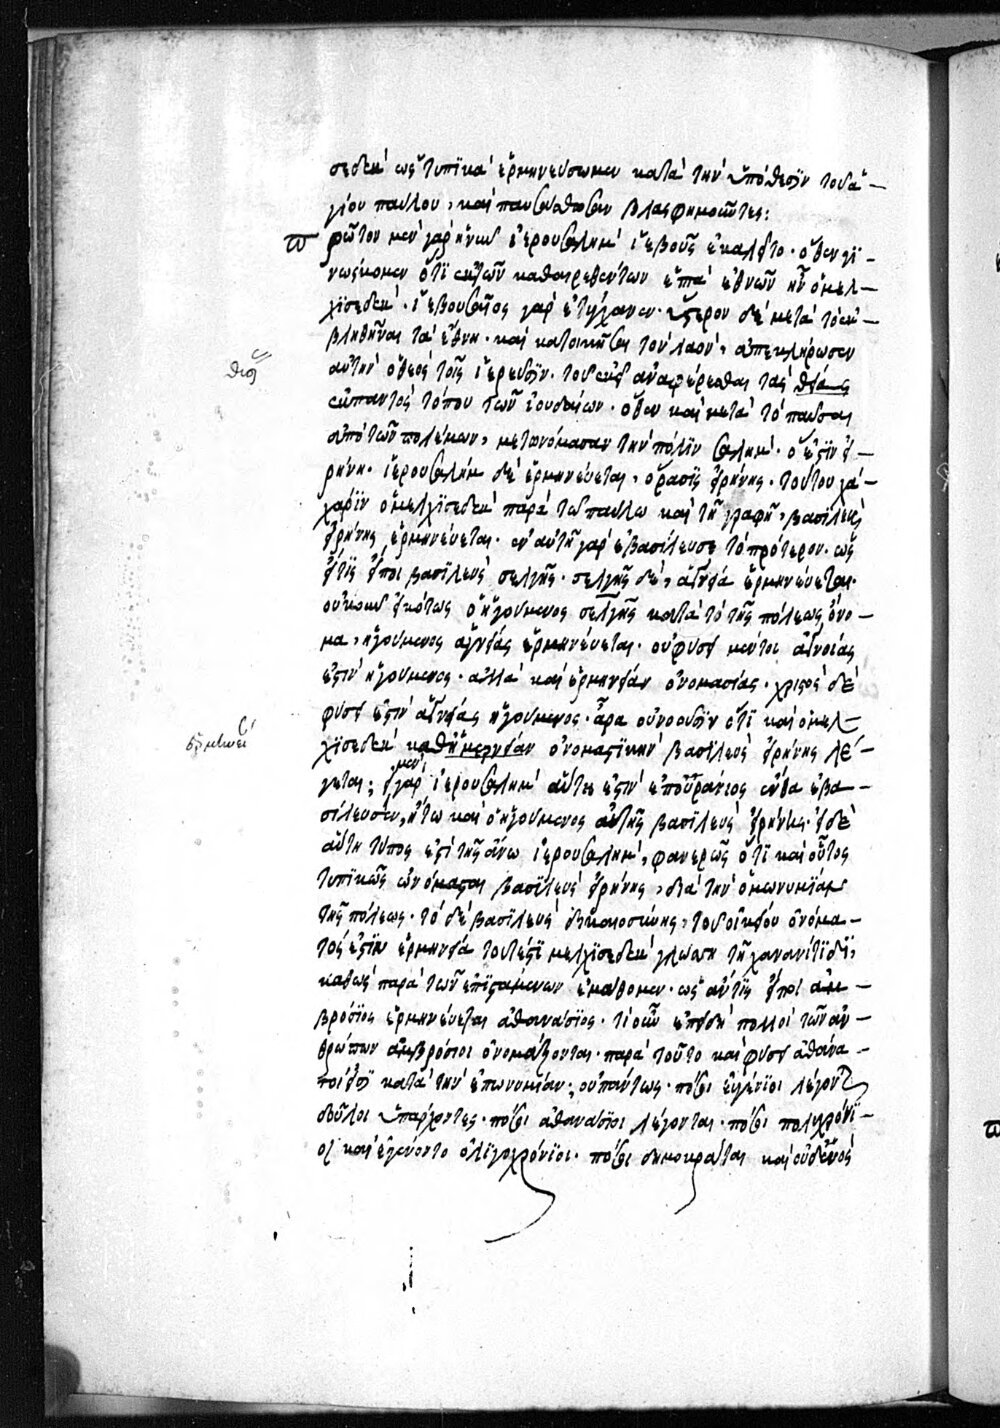 σεδεκ ὡς τυπικὰ ἑρμηνεύσωμεν κατὰ τὴν ὑπόθεσϊν τοῦ ἁ-
γίου παύλου, καὶ παυσάσθωσαν βλασφημοῦντες:
πρῶτον μὲν γὰρ ἡνίκα ἱερουσαλημ ἰεβοῦς ἐκαλεῖτο. ὅθεν γι-
νώσκομεν ὅτϊ ἐκ τῶν καθαιρεθέντων ἑπτὰ ἐθνῶν ἦν ὁ μελ-
χϊσεδεκ. ἰεβουσαῖος γὰρ ἐτύγχανεν. ὕστερον δὲ μετὰ τὸ ἐκ-
βληθῆναι τὰ ἔθνη. καὶ κατοικῆσαι τὸν λαὸν, ἀπεκλήρωσεν
αὐτὴν ὁ θεὸς τοῖς ἱερεῦσϊν. τοῦ ἐκεῖ ἀναφέρεσθαι τὰς θυσίας
ἐκ παντὸς τόπου τῶν ἰουδαίων. ὅθεν καὶ μετὰ τὸ παῦσαι
ἀπὸ τῶν πολέμων, μετωνόμασαν τὴν πόλϊν σαλημ. ὅ ἐστϊν εἰ-
ρήνη. ἱερουσαλήμ δὲ ἑρμηνεύεται, ὅρασϊς εἰρήνης. τούτου χά-
χάρϊν ὁ μελχϊσεδεκ παρὰ τῶ παύλω καὶ τῇ γραφῇ, βασϊλεὺς
εἰρήνης ἑρμηνεύεται. ἐν αὐτῇ γὰρ ἐβασίλευσε τὸ πρότερον. ὡς
εἴ τϊς εἴποι βασϊλεὺς σελγῆς. σελγῆς δὲ, ἁγνεία ἑρμηνεύεται.
οὐκοῦν εἰκότως ὁ ἡγούμενος σελγῆς κατὰ τὸ τῆς πόλεως ὄνο-
μα, ἡγούμενος ἁγνείας ἑρμηνεύεται. οὐ φύσει μέντοι ἁγνείας
ἐστὶν ἡγούμενος. ἀλλὰ καὶ ἑρμηνείαν ὀνομασίας. χριστὸς δὲ
φύσει ἐστὶν ἁγνείας ἡγούμενος. ἆρα οὖν οὐδϊν ὅτϊ καὶ ὁ μελ-
χϊσεδεκ καθ' ἡμερησίαν ὀνομαστϊκὴν βασϊλεὺς εἰρήνης λέ-
γεται; εἰ μὲν γὰρ ἱερουσαλημ αὕτη ἐστὶν ἐπουράνιος ἔνθα ἐβα-
σίλευσεν, ἤτω καὶ ὁ ἡγούμενος αὐτῆς βασϊλεὺς εἰρήνης. εἰ δὲ
αὕτη τύπος ἐστὶ τῆς ἄνω ἱερουσαλημ, φανερῶς ὅτϊ καὶ οὗτος
τυπϊκῶς ὠνόμασται βασϊλεὺς εἰρήνης, διὰ τὴν ὁμωνυμίαν
τῆς πόλεως. τὸ δὲ βασϊλεὺς δϊκαιοσύνης, τοῦ οἰκείου ὀνόμα-
τός ἐστϊν ἑρμηνεία τουτέστϊ μελχϊσεδεκ γλώσση τῇ χανανίτϊδϊ,
καθὼς παρὰ τῶν ἐπϊσταμένων ἐμάθομεν. ὡς ἄν τϊς εἴποι ἀμ-
βρόσϊος ἑρμηνεύεται ἀθανάσϊος. τί οὖν ἐπειδὴ πολλοὶ τῶν ἀν-
θρώπων ἀμβρόσιοι ὀνομάζονται. παρὰ τοῦτο καὶ φύσει ἀθάνα-
τοί εἰσϊ κατὰ τὴν ἐπωνυμίαν; οὐ πάντως. πόσοι εὐγένϊοι λέγονται
δοῦλοι ὑπάρχοντες. πόσοι ἀθανάσϊοι λέγονται. πόσοι πολυχρόνϊ-
οι καὶ ἐγένοντο ὀλϊγοχρόνϊοι. πόσοι δημοκράται καὶ οὐδενὸς